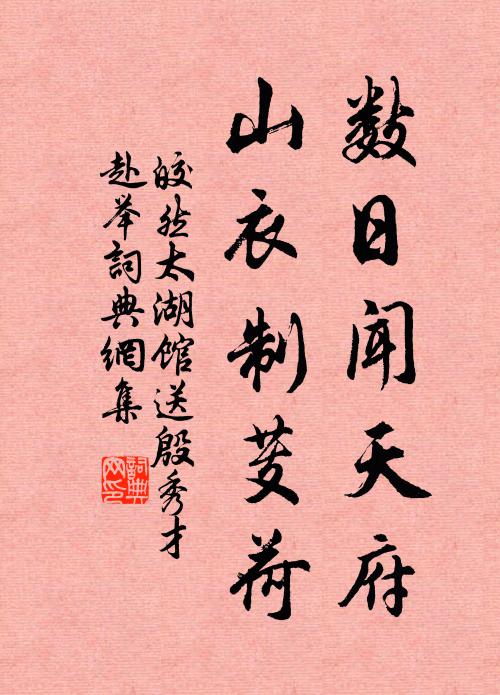 数日闻天府
山衣制芰荷
皎然太湖馆送殷秀才
赴举詞典網集
詞典网印